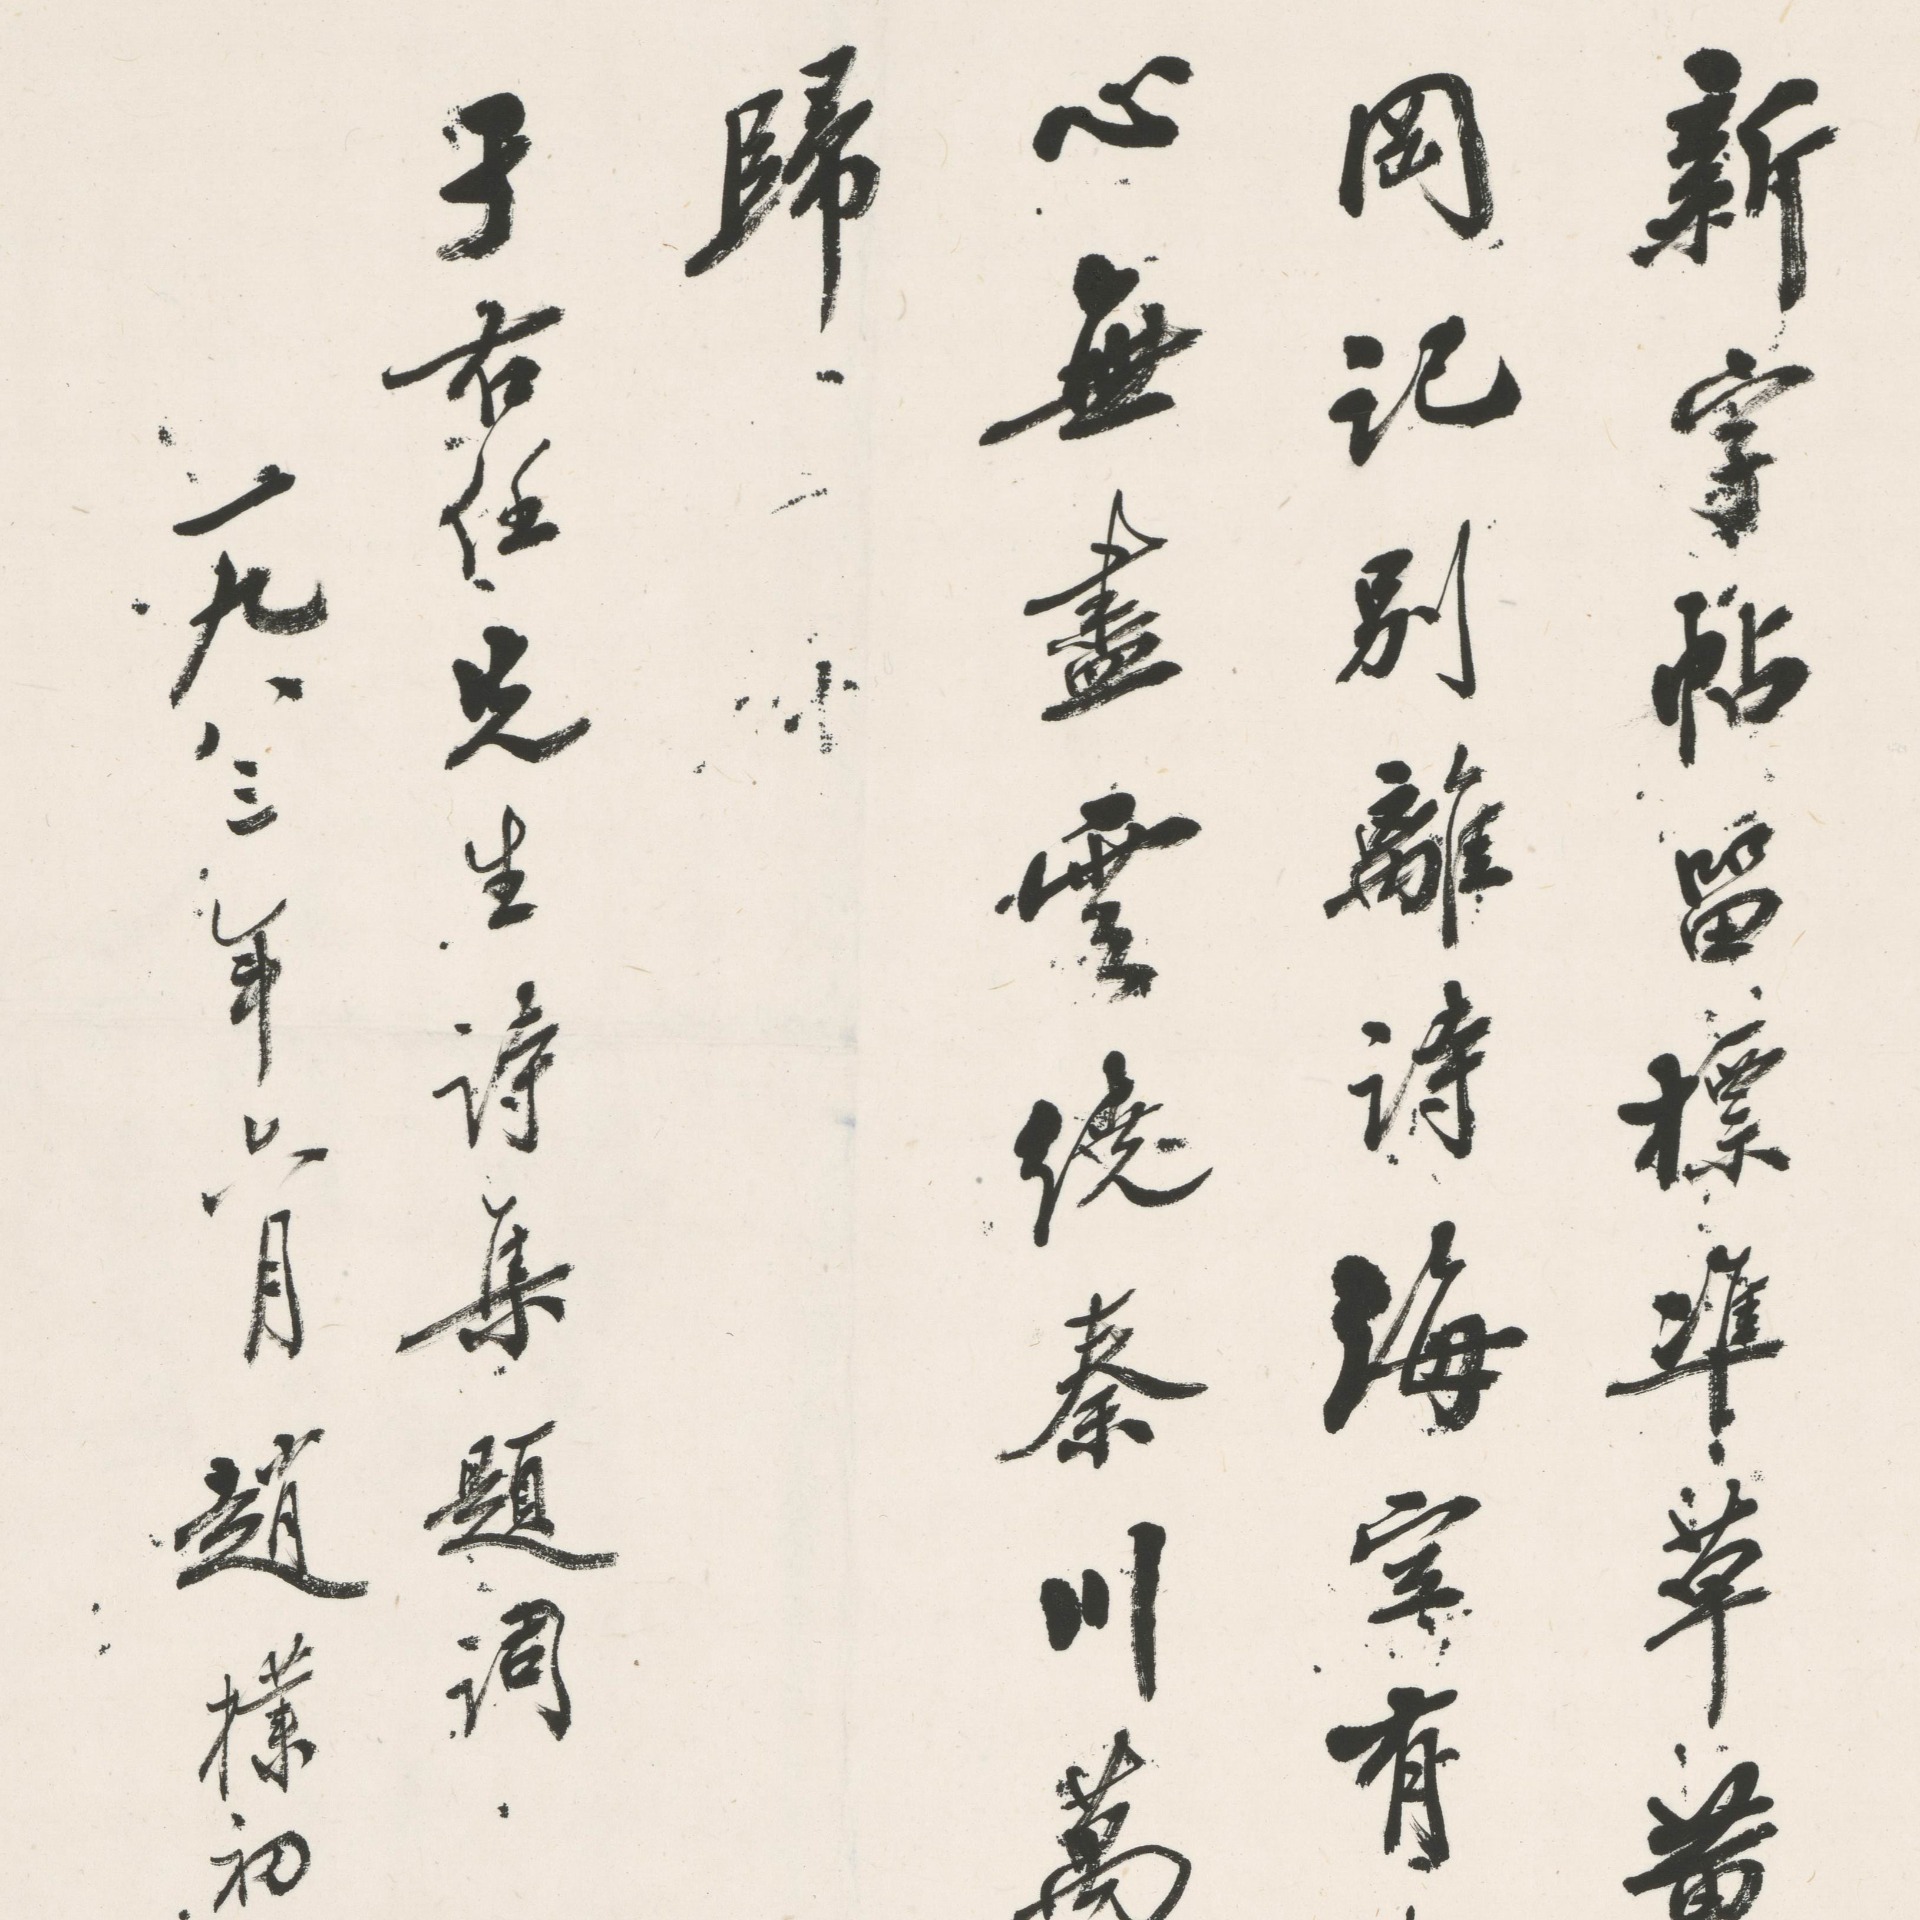 新字帖留標準草黃
岡記別離詩海空有
心無盡雲繞秦川萬
歸
于右任先生詩集題詞
一九八三年六月趙樸初